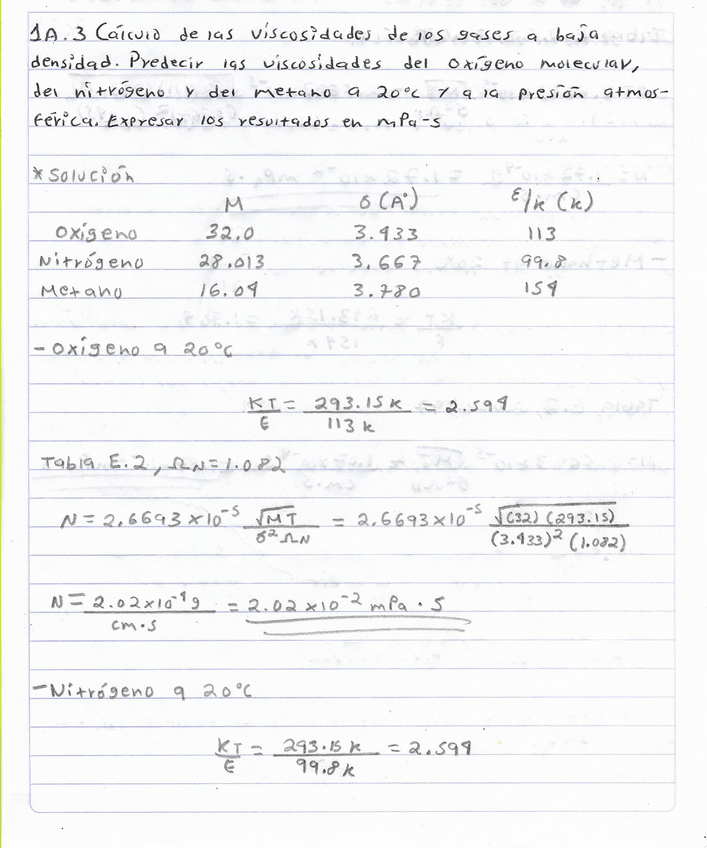 1A.3 Cálculo de las viscosidades de los gases a baja
densidad. Predecir las viscosidades del oxígeno molecular,
del nitrógeno y del metano a 20°C y a la presión atmos-
férica. Expresar los resultados en mPa-s
* Solución
M σ (A°) ε/k (k)
Oxígeno 32.0 3.433 113
Nitrógeno 28.013 3.667 99.8
Metano 16.04 3.780 154
- Oxígeno a 20°C
KT/ε = 293.15 k / 113 k = 2.594
Tabla E.2, Ω_N = 1.082
N = 2.6693 x 10⁻⁵ √MT / σ² Ω_N = 2.6693 x 10⁻⁵ √(32) (293.15) / (3.433)² (1.082)
N = 2.02 x 10⁻⁴ g / cm·s = 2.02 x 10⁻² mPa · s
- Nitrógeno a 20°C
KT/ε = 293.15 k / 99.8 k = 2.594